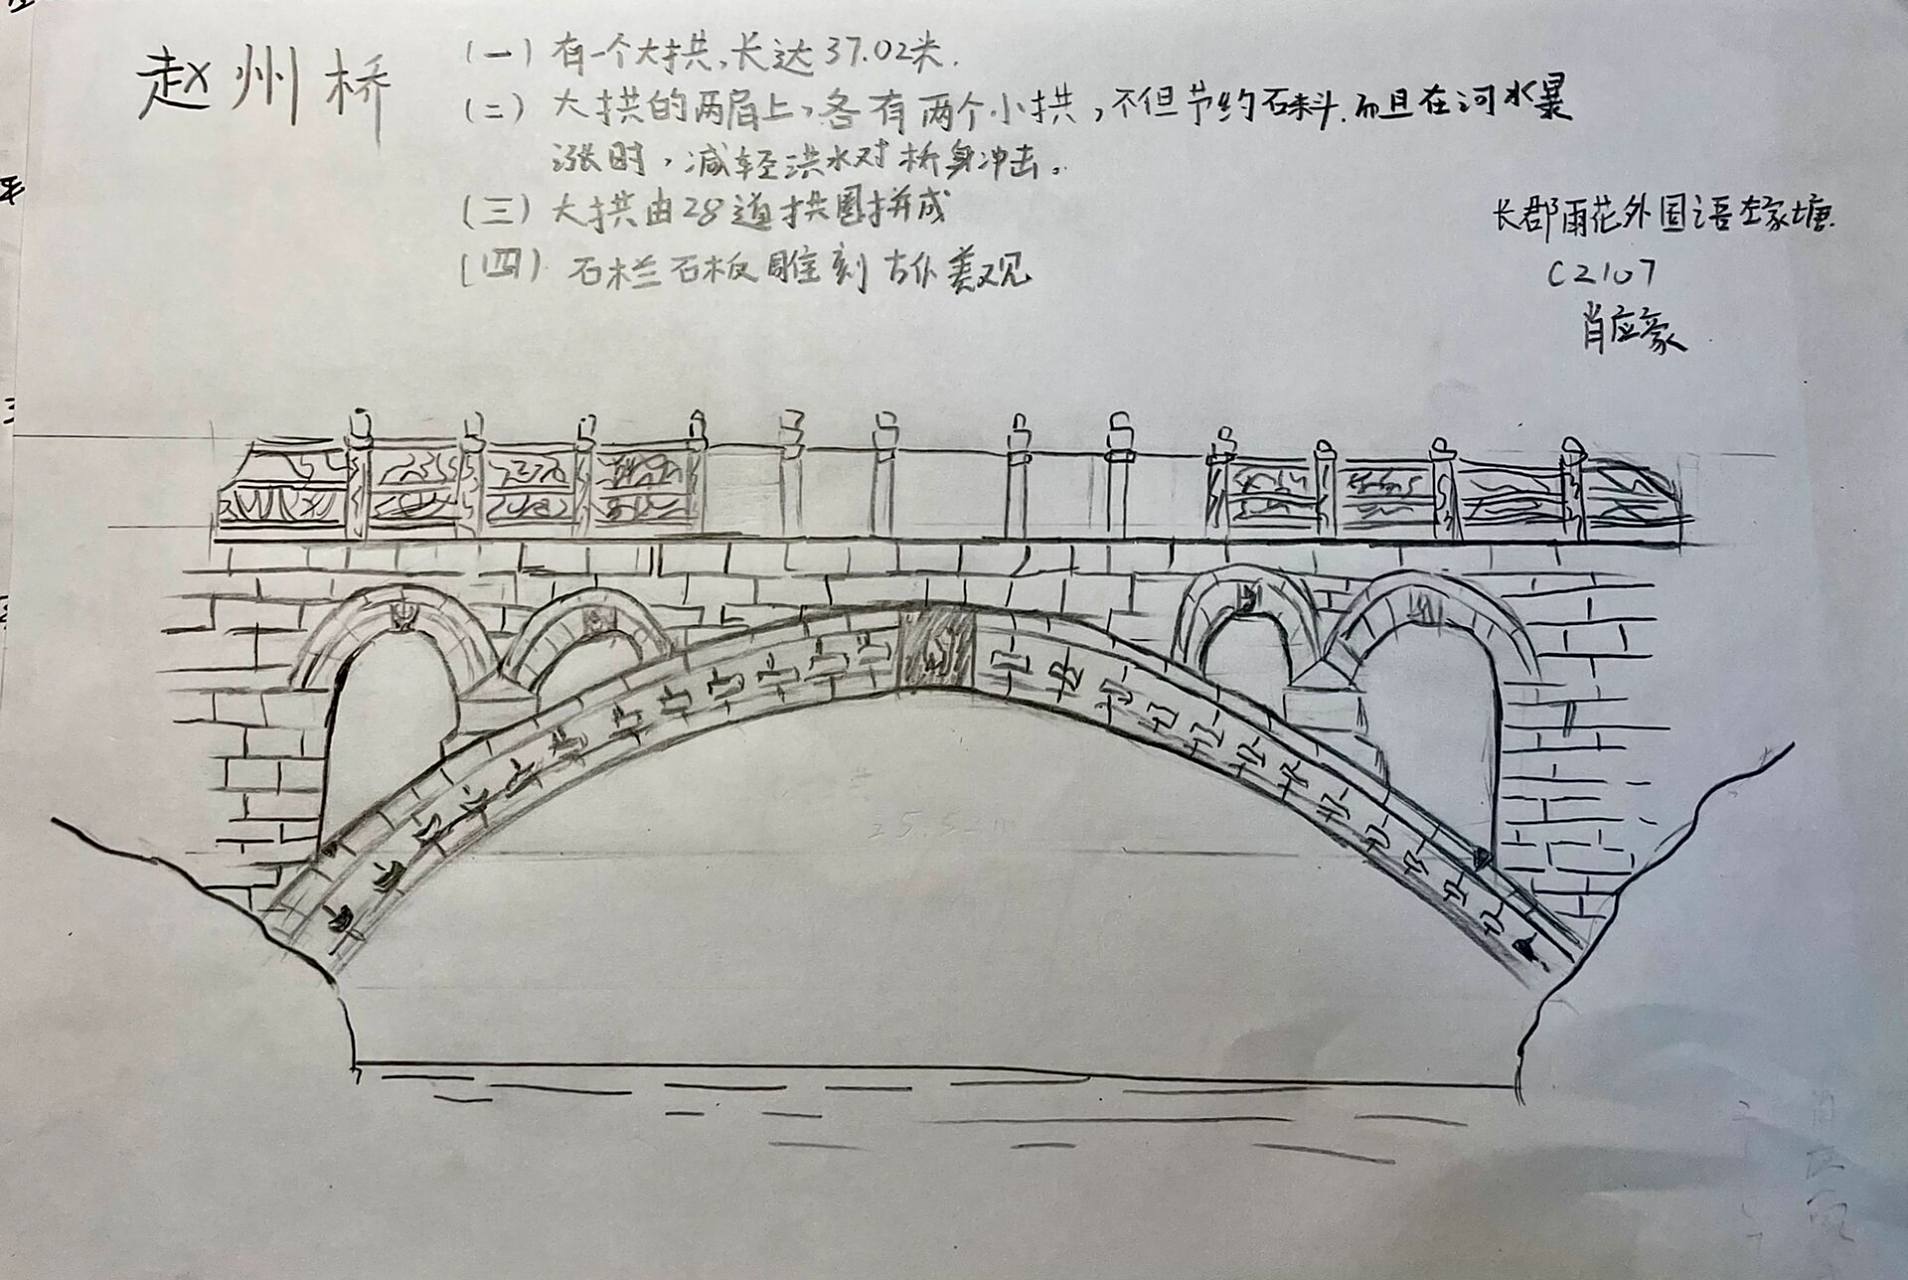 赵州桥
(一) 有一个大拱,长达37.02米.
(二) 大拱的两肩上,各有两个小拱,不但节约石料.而且在河水暴
涨时,减轻洪水对桥身冲击。
(三) 大拱由28道拱圈拼成
(四) 石栏石板雕刻古朴美观
长郡雨花外国语左家塘.
C2107
肖应豪